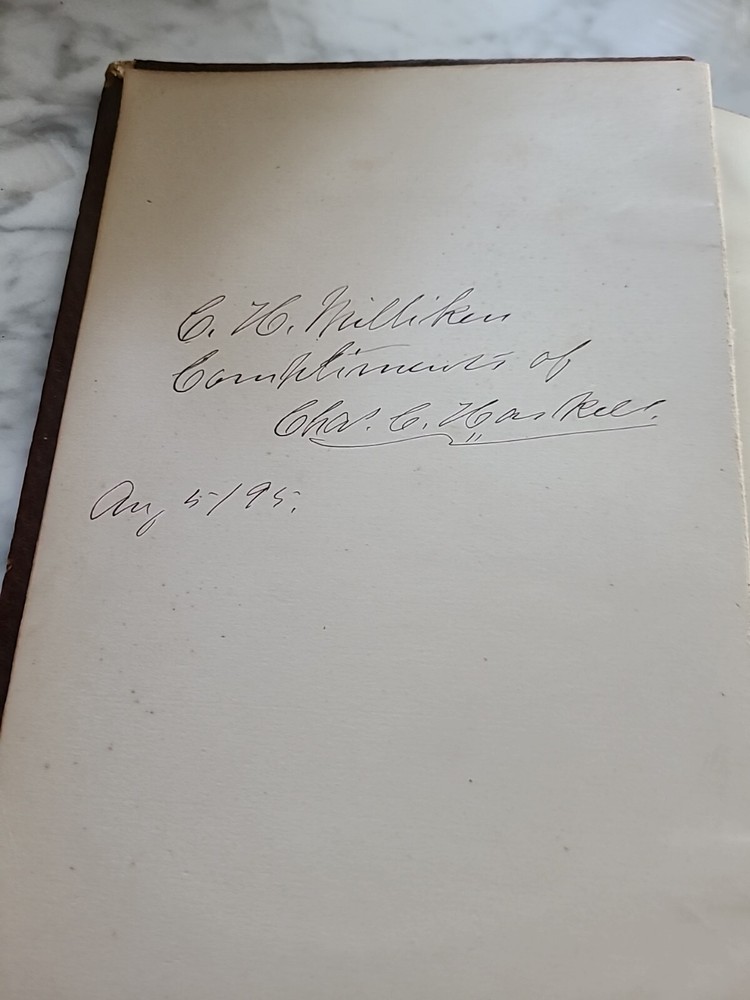 C. H. Milliken
Compliments of
Chas. C. Haskell.
Aug 5/95.